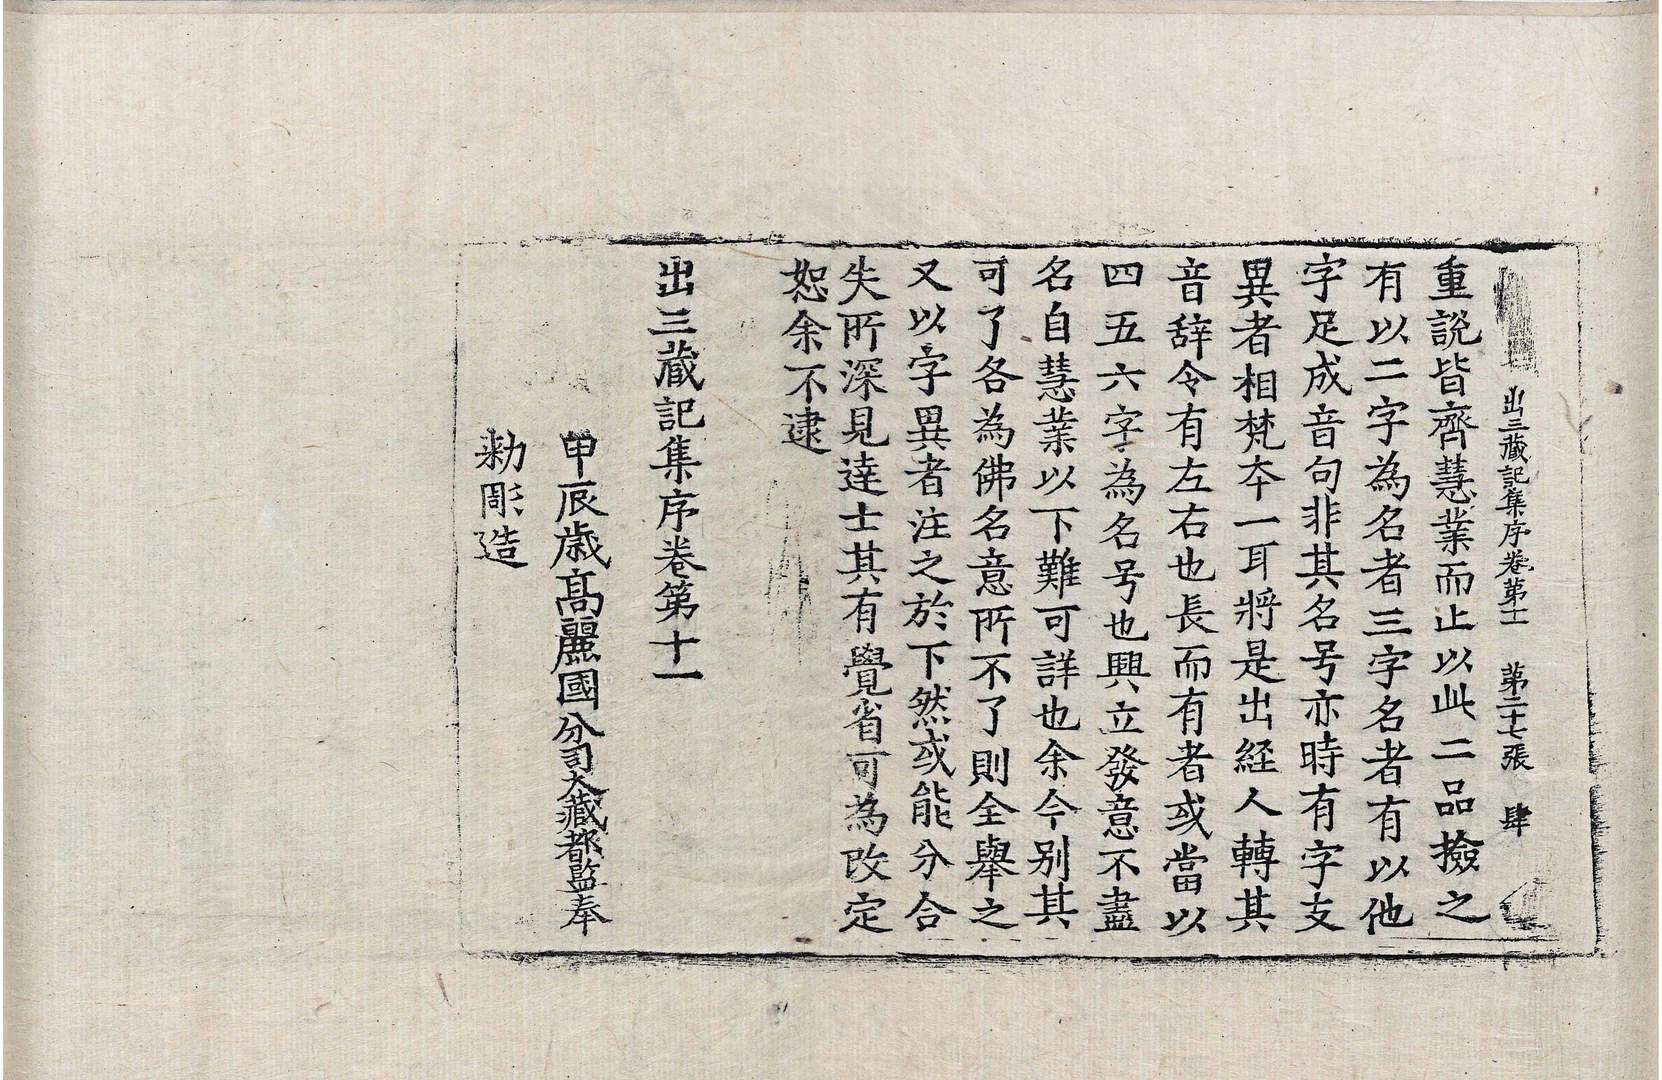 出三藏記集序卷第十一 第二十七張 肆
重說皆齊慧業而止以此二品撿之
有以二字為名者三字名者有以他
字足成音句非其名号亦時有字支
異者相梵夲一耳將是出経人轉其
音辞令有左右也長而有者或當以
四五六字為名号也興立發意不盡
名自慧業以下難可詳也余今别其
可了各為佛名意所不了則全舉之
又以字異者注之於下然或能分合
失所深見達士其有覺省可為改定
恕余不逮
出三藏記集序卷第十一
甲辰歳髙麗國分司大藏都監奉
勑彫造